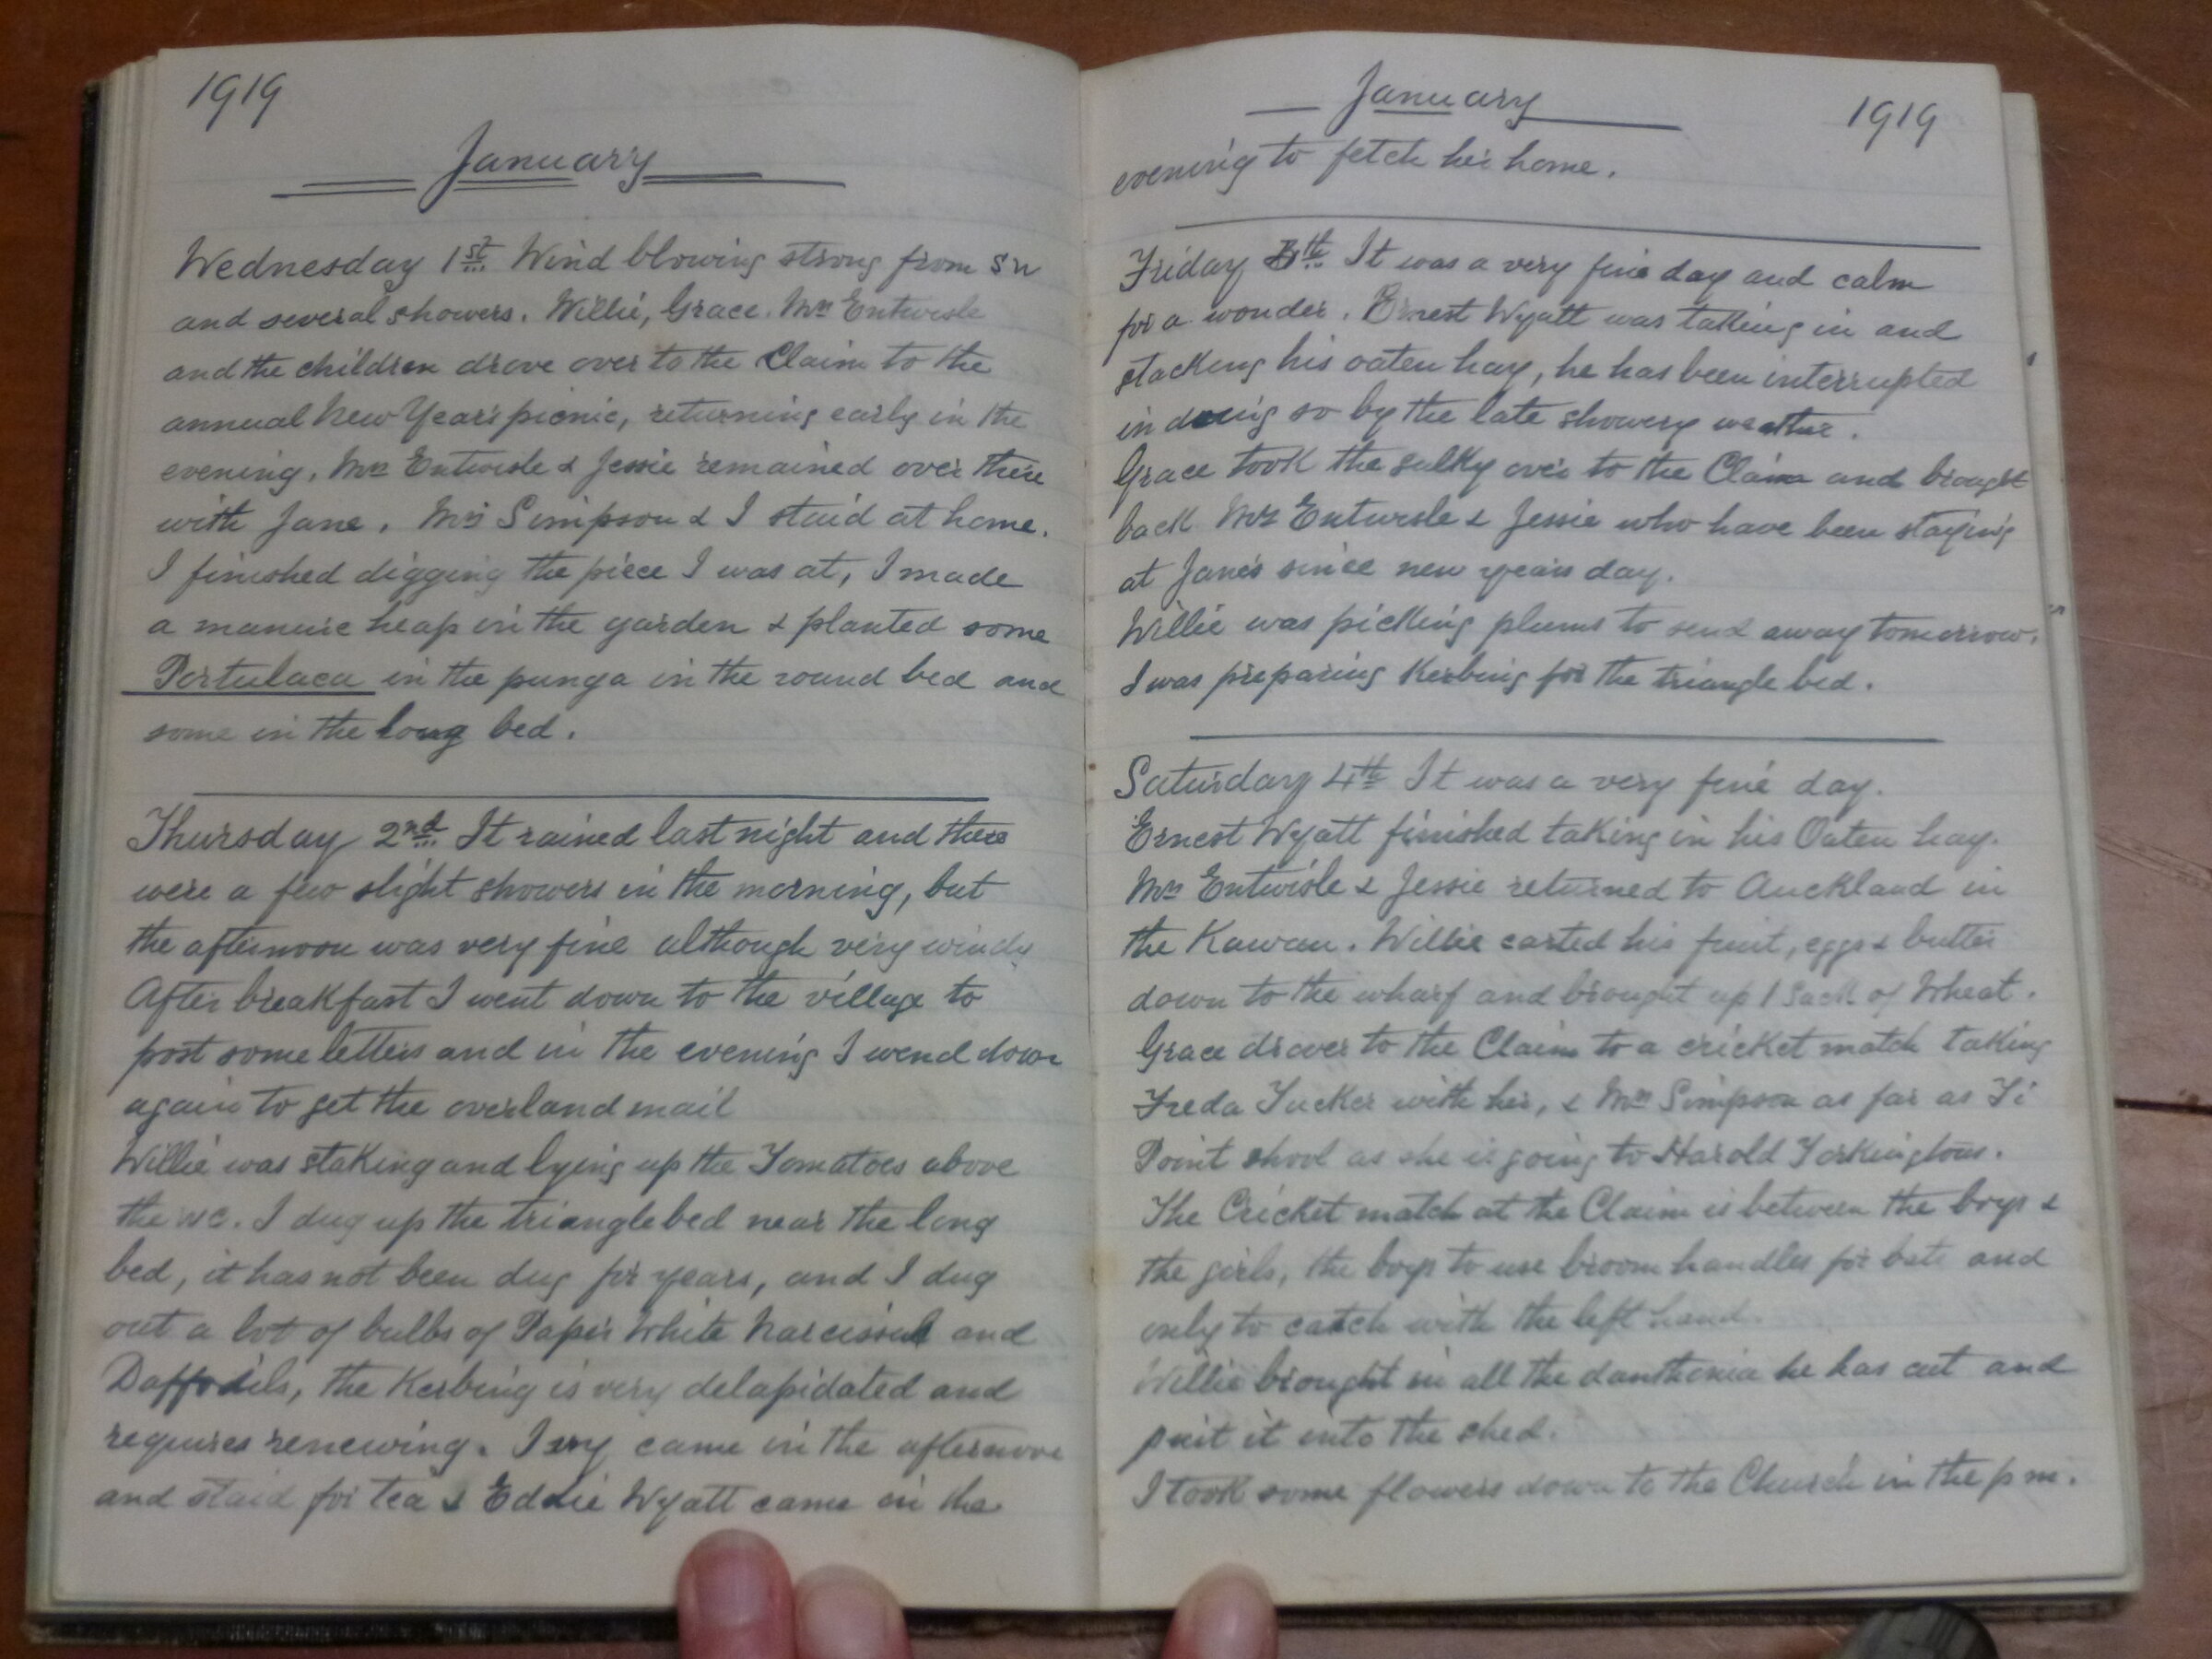 1919
January
Wednesday 1st Wind blowing strong from SW
and several showers. Willie, Grace. Mrs Entwisle
and the children drove over to the Claim to the
annual New Years picnic, returning early in the
evening. Mrs Entwisle & Jessie remained over there
with Jane. Mrs Simpson & I staid at home.
I finished digging the piece I was at, I made
a manure heap in the garden & planted some
Portulaca in the punga in the round bed and
some in the long bed.
Thursday 2nd It rained last night and there
were a few slight showers in the morning, but
the afternoon was very fine although very windy
After breakfast I went down to the village to
post some letters and in the evening I wend down
again to get the overland mail
Willie was staking and tying up the Tomatoes above
the wc. I dug up the triangle bed near the long
bed, it has not been dug for years, and I dug
out a lot of bulbs of Paper White Narcissus and
Daffodils, the Kerbing is very delapidated and
requires renewing. Ivy came in the afternoon
and staid for tea & Eddie Wyatt came in the
January
1919
evening to fetch her home.
Friday th It was a very fine day and calm
for a wonder. Ernest Wyatt was taking in and
stacking his oaten hay, he has been interrupted
in doing so by the late showery weather.
Grace took the sulky over to the Claim and brought
back Mrs Entwisle & Jessie who have been staying
at Jane's since new years day.
Willie was picking plums to send away tomorrow.
I was preparing Kerbing for the triangle bed.
Saturday 4th It was a very fine day.
Ernest Wyatt finished taking in his Oaten hay.
Mrs Entwisle & Jessie returned to Auckland in
the Kawau. Willie carted his fruit, eggs & butter
down to the wharf and brought up 1 Sack of Wheat.
Grace drover to the Claim to a cricket match taking
Freda Tucker with her, & Mrs Simpson as far as Ti
Point shool as she is going to Harold Torkingtons.
The Cricket match at the Claim is between the boys &
the girls, the boys to use broom handles for bats and
only to catch with the left hand.
Willie brought in all the danthonia he has cut and
put it into the shed.
I took some flowers down to the Church in the pm.